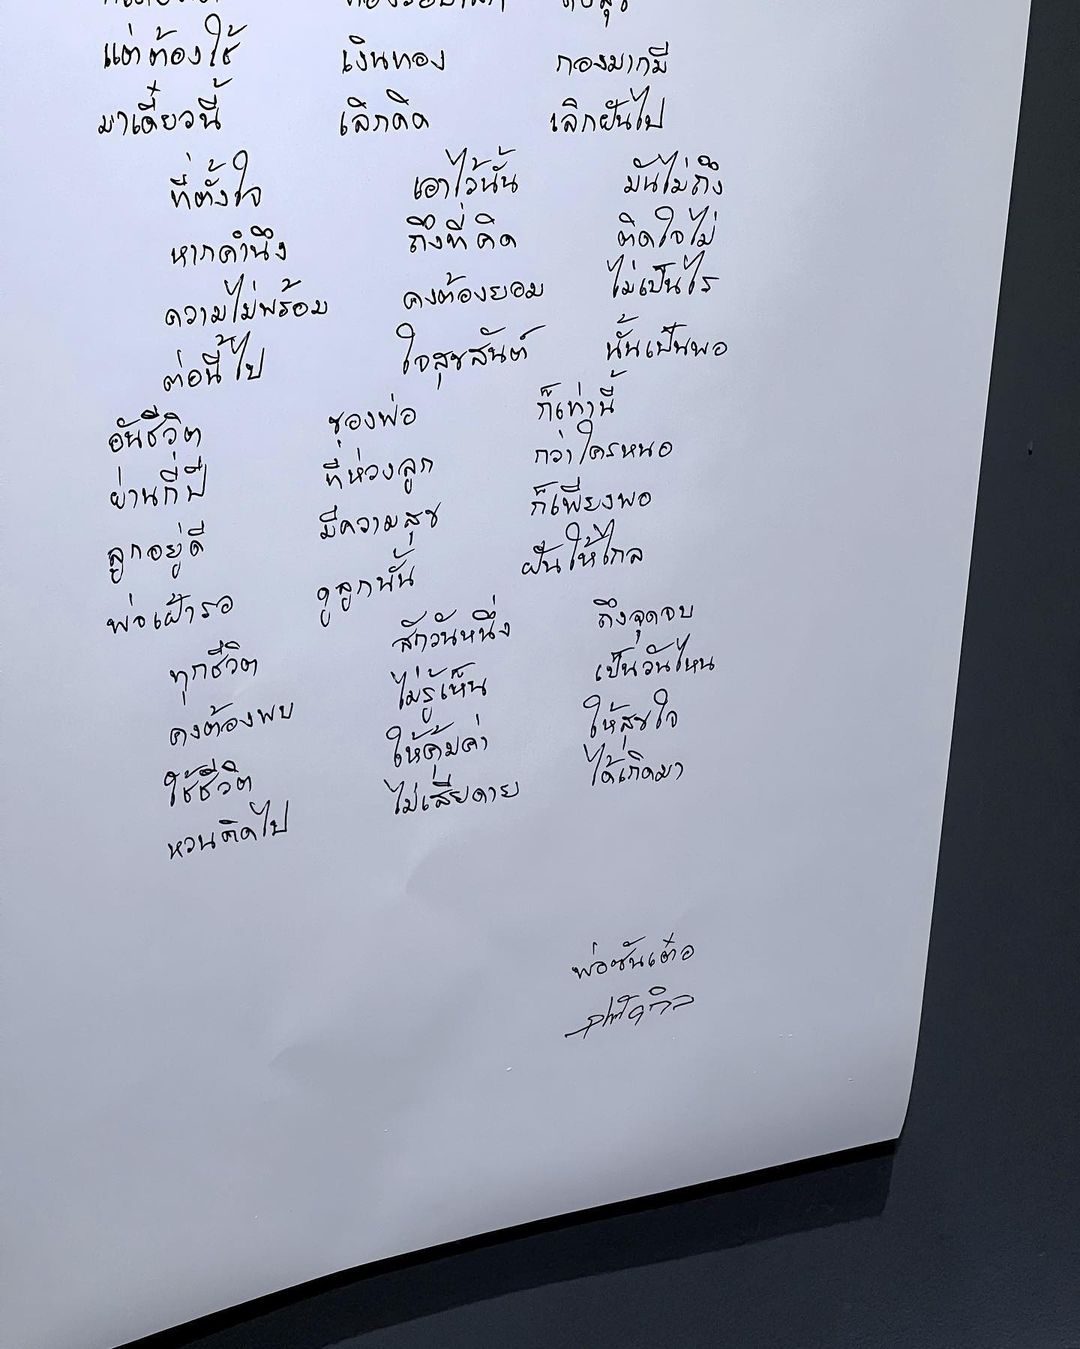 แต่ต้องใช้ เงินทอง กองมากมี
มาเดี๋ยวนี้ เลิกคิด เลิกฝันไป
ที่ตั้งใจ เอาไว้นั้น มันไม่ถึง
หากคำนึง ถึงที่คิด ติดใจไม่
ความไม่พร้อม คงต้องยอม ไม่เป็นไร
ต่อนี้ไป ใจสุขสันต์ นั้นเป็นพอ
อันชีวิต ของพ่อ ก็เท่านี้
ย่านกี่ปี ที่ห่วงลูก กว่าใครหนอ
ลูกอยู่ดี มีความสุข ก็เพียงพอ
พ่อเฝ้ารอ ดูลูกนั้น ฝันให้ไกล
ทุกชีวิต สักวันหนึ่ง ถึงจุดจบ
คงต้องพบ ไม่รู้เห็น เป็นวันไหน
ใช้ชีวิต ให้คุ้มค่า ให้สุขใจ
หวนคิดไป ไม่เสียดาย ได้เกิดมา